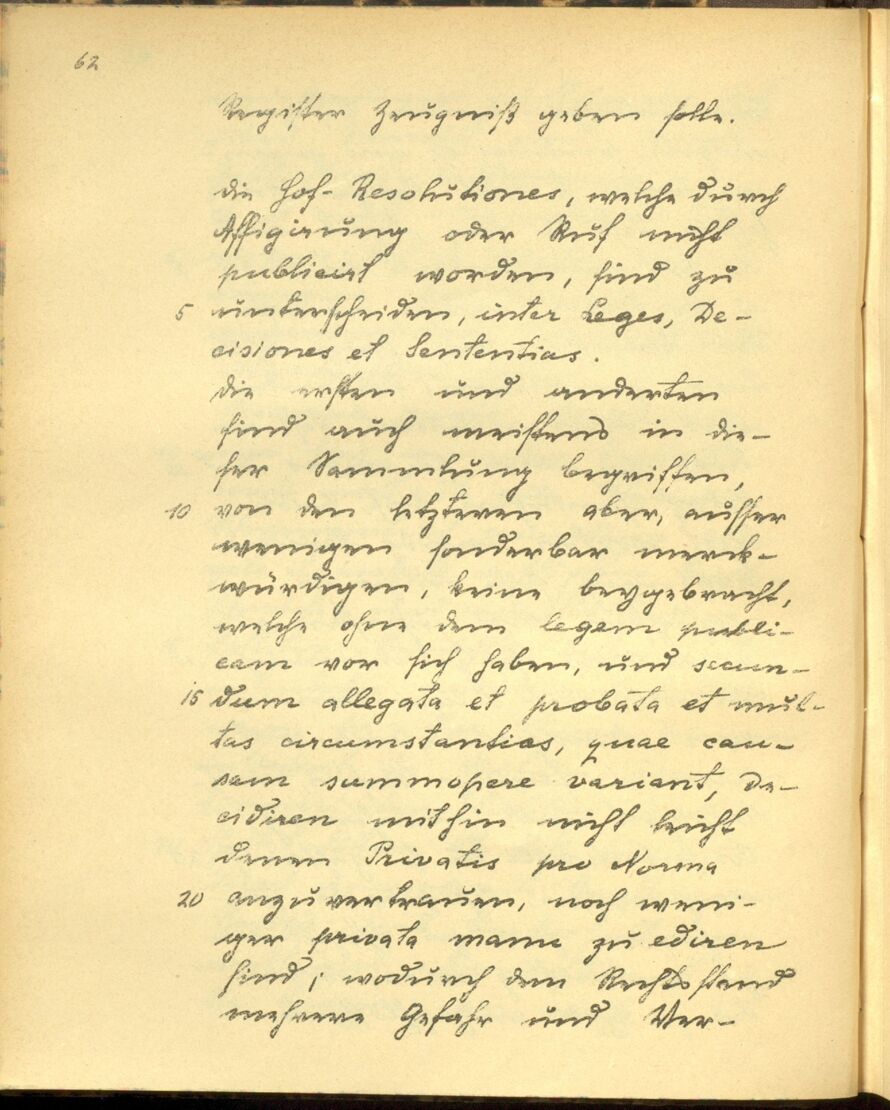 62
Register Zeugniß geben solle.
die Hof-Resolutiones, welche durch
Affigirung oder Ruf nicht
publicirt worden, sind zu
5 unterscheiden, inter Leges, De-
cisiones et Sententias.
die ersten und anderten
sind auch meistens in die-
ser Sammlung begriffen,
10 von den letzteren aber, ausser
wenigen sonderbar merck-
würdigen, keine beygebracht,
welche ohne dem legem publi-
cam vor sich haben, und secun-
15 dum allegata et probata et mul-
tas circumstantias, quae cau-
sam summopere variant, De-
cidiren mithin nicht leicht
denen Privatis pro Norma
20 anzuvertrauen, noch weni-
ger privata manu zu ediren
sind; wodurch dem Rechtsstand
mehrere Gefahr und Ver-